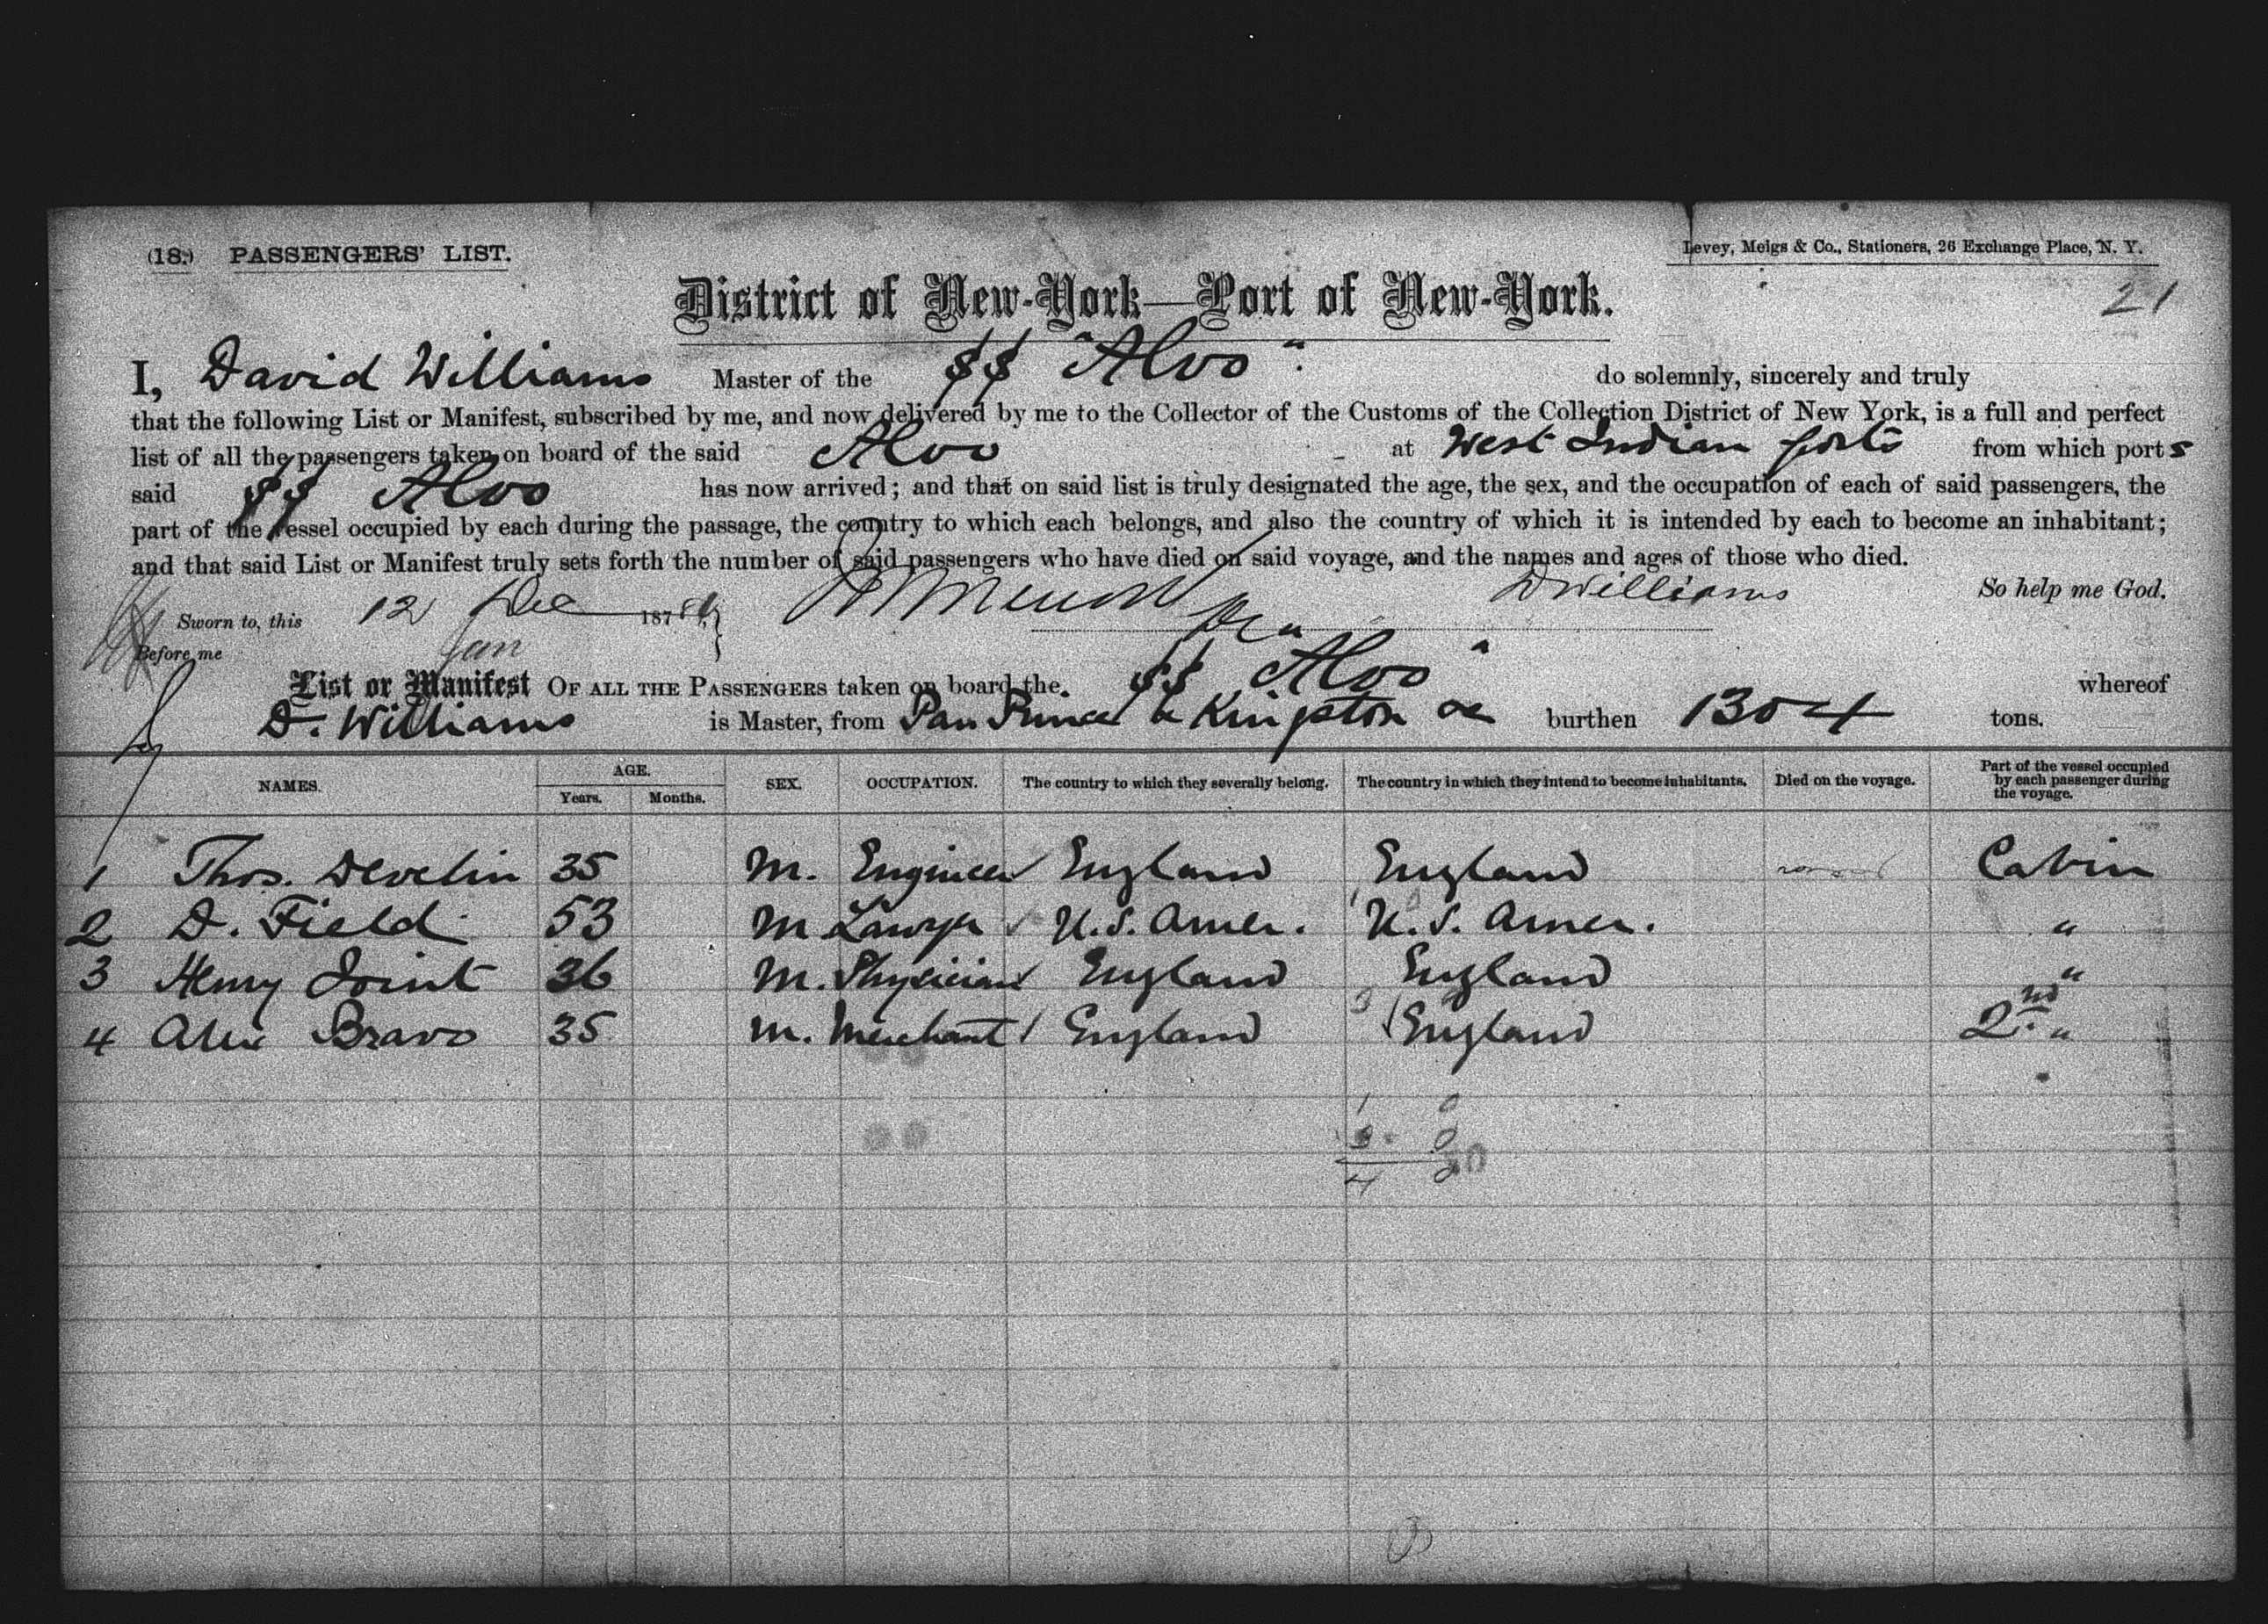 (18.) PASSENGERS' LIST.
Levey, Meigs & Co., Stationers, 26 Exchange Place, N. Y.
21
District of New-York—Port of New-York.
I, David Williams Master of the SS "Alvo" do solemnly, sincerely and truly
that the following List or Manifest, subscribed by me, and now delivered by me to the Collector of the Customs of the Collection District of New York, is a full and perfect
list of all the passengers taken on board of the said Alvo at West Indian ports from which ports
said SS Alvo has now arrived; and that on said list is truly designated the age, the sex, and the occupation of each of said passengers, the
part of the vessel occupied by each during the passage, the country to which each belongs, and also the country of which it is intended by each to become an inhabitant;
and that said List or Manifest truly sets forth the number of said passengers who have died on said voyage, and the names and ages of those who died.
D Williams So help me God.
Sworn to, this 12 Dec 187
Before me Jan
List or Manifest OF ALL THE PASSENGERS taken on board the SS "Alvo" whereof
D. Williams is Master, from Kingston burthen 1304 tons.
NAMES. AGE. Years. Months. SEX. OCCUPATION. The country to which they severally belong. The country in which they intend to become inhabitants. Died on the voyage. Part of the vessel occupied by each passenger during the voyage.
1 Thos. Develin 35 M. Engineer England England Cabin
2 D. Field 53 M Lawyr U.S. Amer. U.S. Amer. "
3 Henry Joint 36 M. Physician England England "
4 Alex Bravo 35 M. Merchant England England 2nd "
1 0
3 0
4 0